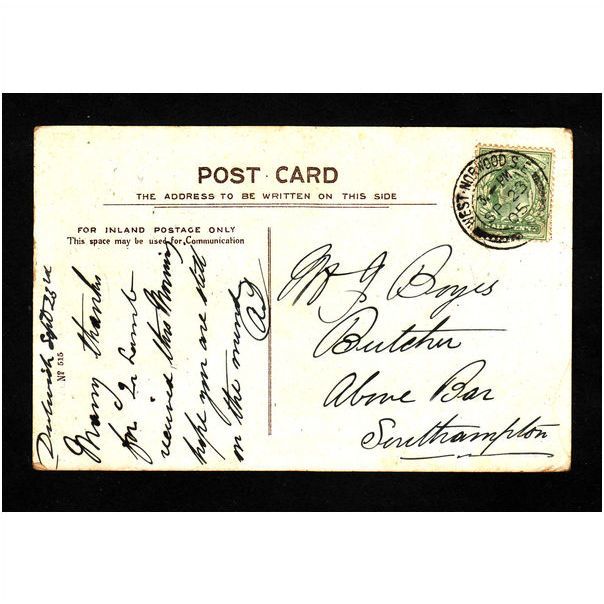 POST CARD
THE ADDRESS TO BE WRITTEN ON THIS SIDE
FOR INLAND POSTAGE ONLY
This space may be used for Communication
WEST-NORWOOD S.E.
SP 23
05
HALFPENNY
Nº 515
Dulwich Sept 23rd
Many thanks
for Lamb
received this Morning
hope you are still
on the mend
Mr J Boyes
Butcher
Above Bar
Southampton